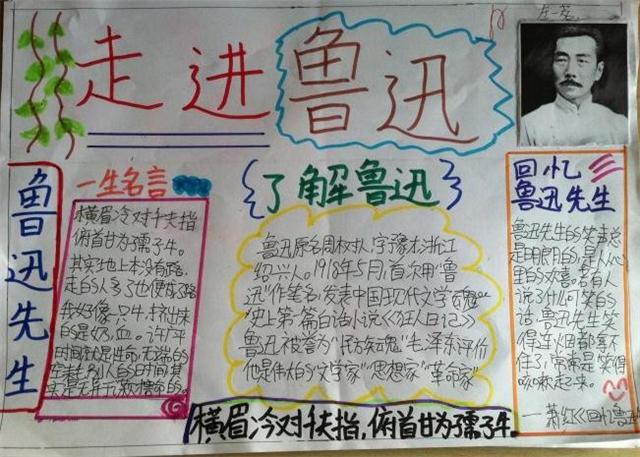 走进鲁迅
鲁迅先生
一生名言
横眉冷对千夫指
俯首甘为孺子牛。
其实地上本没有路,
走的人多了也便成了路
我好像一只牛,挤出来
的是奶,血。许广平
时间就是生命,无端的
空耗别人的时间其
实是无异于谋财害命的。
了解鲁迅
鲁迅原名周树人,字豫才,浙江
绍兴人。1918年5月,首次用“鲁
迅”作笔名,发表中国现代文学
史上第一篇白话小说《狂人日记》
鲁迅被誉为“民族魂”毛泽东评价
他是伟大的“文学家”“思想家”“革命家”
横眉冷对千夫指,俯首甘为孺子牛。
回忆
鲁迅先生
鲁迅先生的笑声总
是明朗的,是从心
里的欢喜。若有人
说了什么可笑的
话,鲁迅先生笑
得连烟都拿不
住了,常常是笑得
咳嗽起来。
—萧红《回忆鲁迅